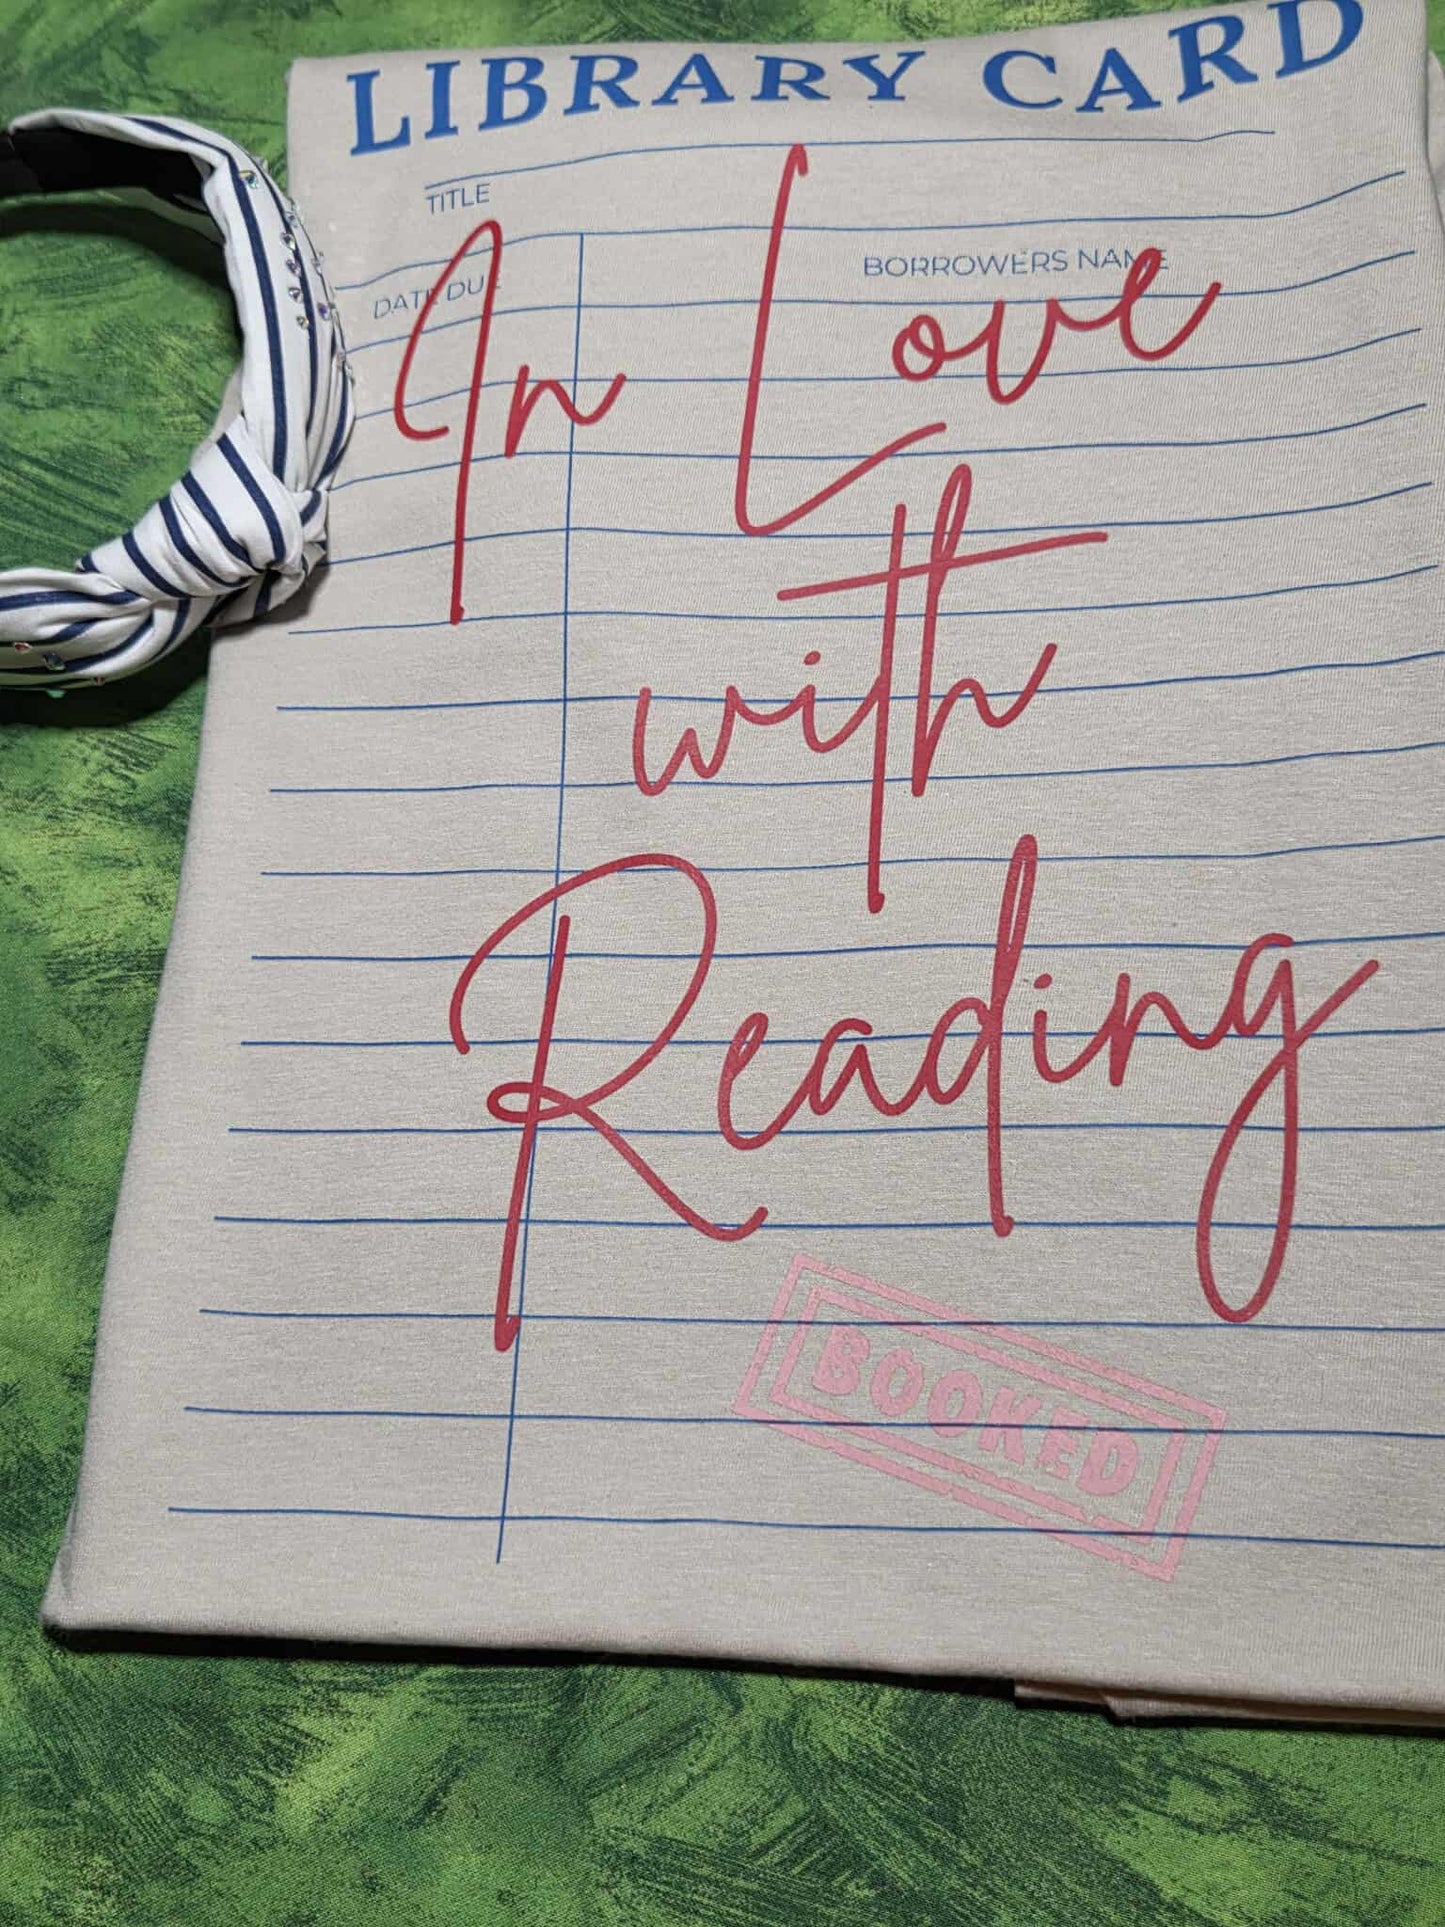 LIBRARY CARD
TITLE
DATE DUE
BORROWERS NAME
In Love
with
Reading
BOOKED